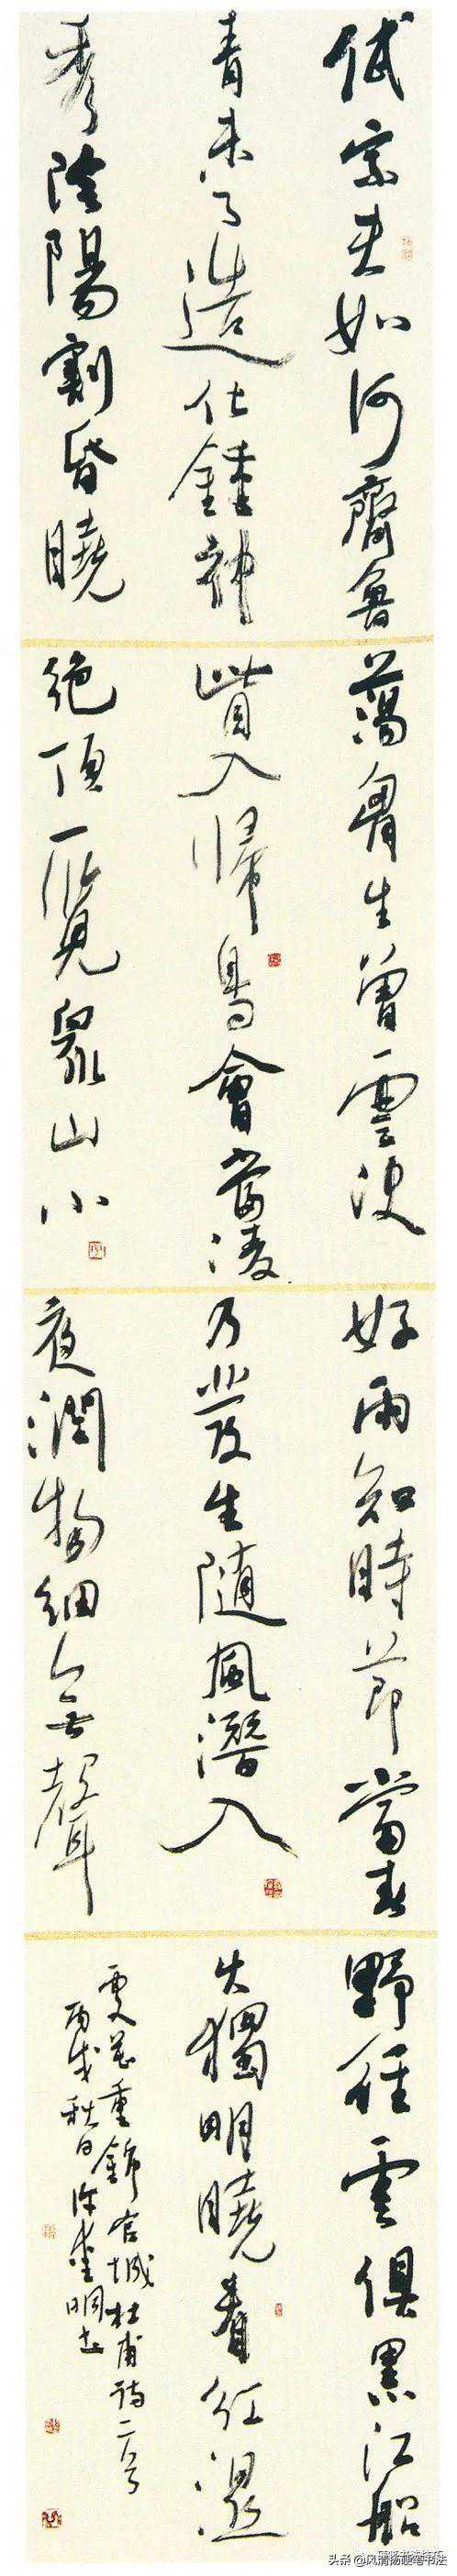 岱宗夫如何齊魯
青未了造化鍾神
秀陰陽割昏曉
蕩胷生曾雲決
眥入歸鳥會當凌
絕頂一覽衆山小
好雨知時節當春
乃發生隨風潛入
夜潤物細無聲
野徑雲俱黑江船
火獨明曉看紅濕
處花重錦官城杜甫詩二首
丙戌秋日明书
头条 @风清扬硬笔书法